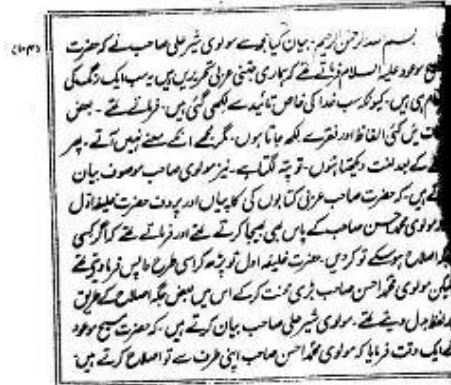 (۱۰۴)
بسم اللہ الرحمن الرحیم۔ بیان کیا مجھ سے مولوی شیر علی صاحب نے کہ حضرت
مسیح موعود علیہ السلام فرماتے تھے کہ ہماری جتنی عربی تحریریں ہیں یہ سب ایک رنگ کی
الہام ہی ہیں۔ کیونکہ سب خدا کی خاص تائید سے لکھی گئی ہیں۔ فرماتے تھے۔ بعض
اوقات میں کئی الفاظ اور فقرے لکھ جاتا ہوں۔ مگر مجھے انکے معنے نہیں آتے۔ پھر
کے بعد لغت دیکھتا ہوں۔ تو پتہ لگتا ہے۔ نیز مولوی صاحب موصوف بیان
کرتے ہیں۔ کہ حضرت صاحب عربی کتابوں کی کاپیاں اور پروف حضرت خلیفہ اول
اور مولوی محمد احسن صاحب کے پاس بھی بھیجا کرتے تھے اور فرماتے تھے کہ اگر کسی
جگہ اصلاح ہو سکے تو کردیں۔ حضرت خلیفہ اول تو پڑھ کر اسی طرح واپس فرما دیتے تھے
لیکن مولوی محمد احسن صاحب بڑی محنت کرکے اس میں بعض جگہ اصلاح کے طریق
لفظ بدل دیتے تھے۔ مولوی شیر علی صاحب بیان کرتے ہیں۔ کہ حضرت مسیح موعود
ایک وقت فرمایا کہ مولوی محمد احسن صاحب اپنی طرف سے تو اصلاح کرتے ہیں۔